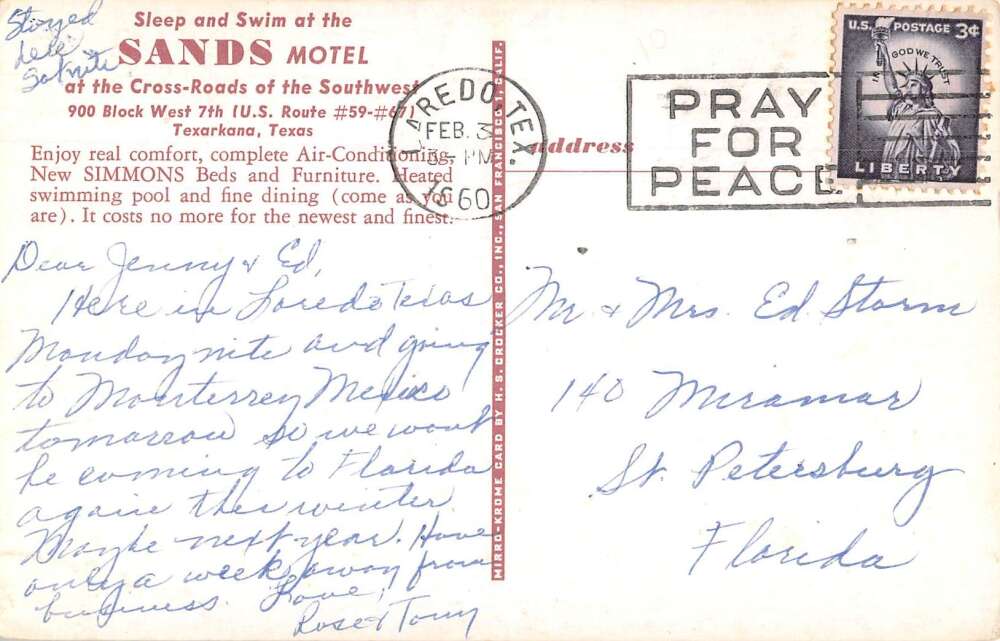 Stayed
here
Sat nite
Sleep and Swim at the
SANDS MOTEL
at the Cross-Roads of the Southwest
900 Block West 7th (U.S. Route #59-#67)
Texarkana, Texas
Enjoy real comfort, complete Air-Conditioning,
New SIMMONS Beds and Furniture. Heated
swimming pool and fine dining (come as you
are). It costs no more for the newest and finest.
Dear Jenny & Ed,
Here in Loredo Texas
Monday nite and going
to Monterrey Mexico
tomorrow so we wont
be coming to Florida
again this winter.
Maybe next year. Have
only a week away from
business. Love,
Rose & Tony
MIRRO-KROME CARD BY H. S. CROCKER CO., INC., SAN FRANCISCO 1, CALIF.
LAREDO, TEX.
FEB. 3
3 - PM
1960
address
PRAY
FOR
PEACE
U.S. POSTAGE 3¢
IN GOD WE TRUST
LIBERTY
Mr & Mrs. Ed Storm
140 Miramar
St. Petersburg
Florida